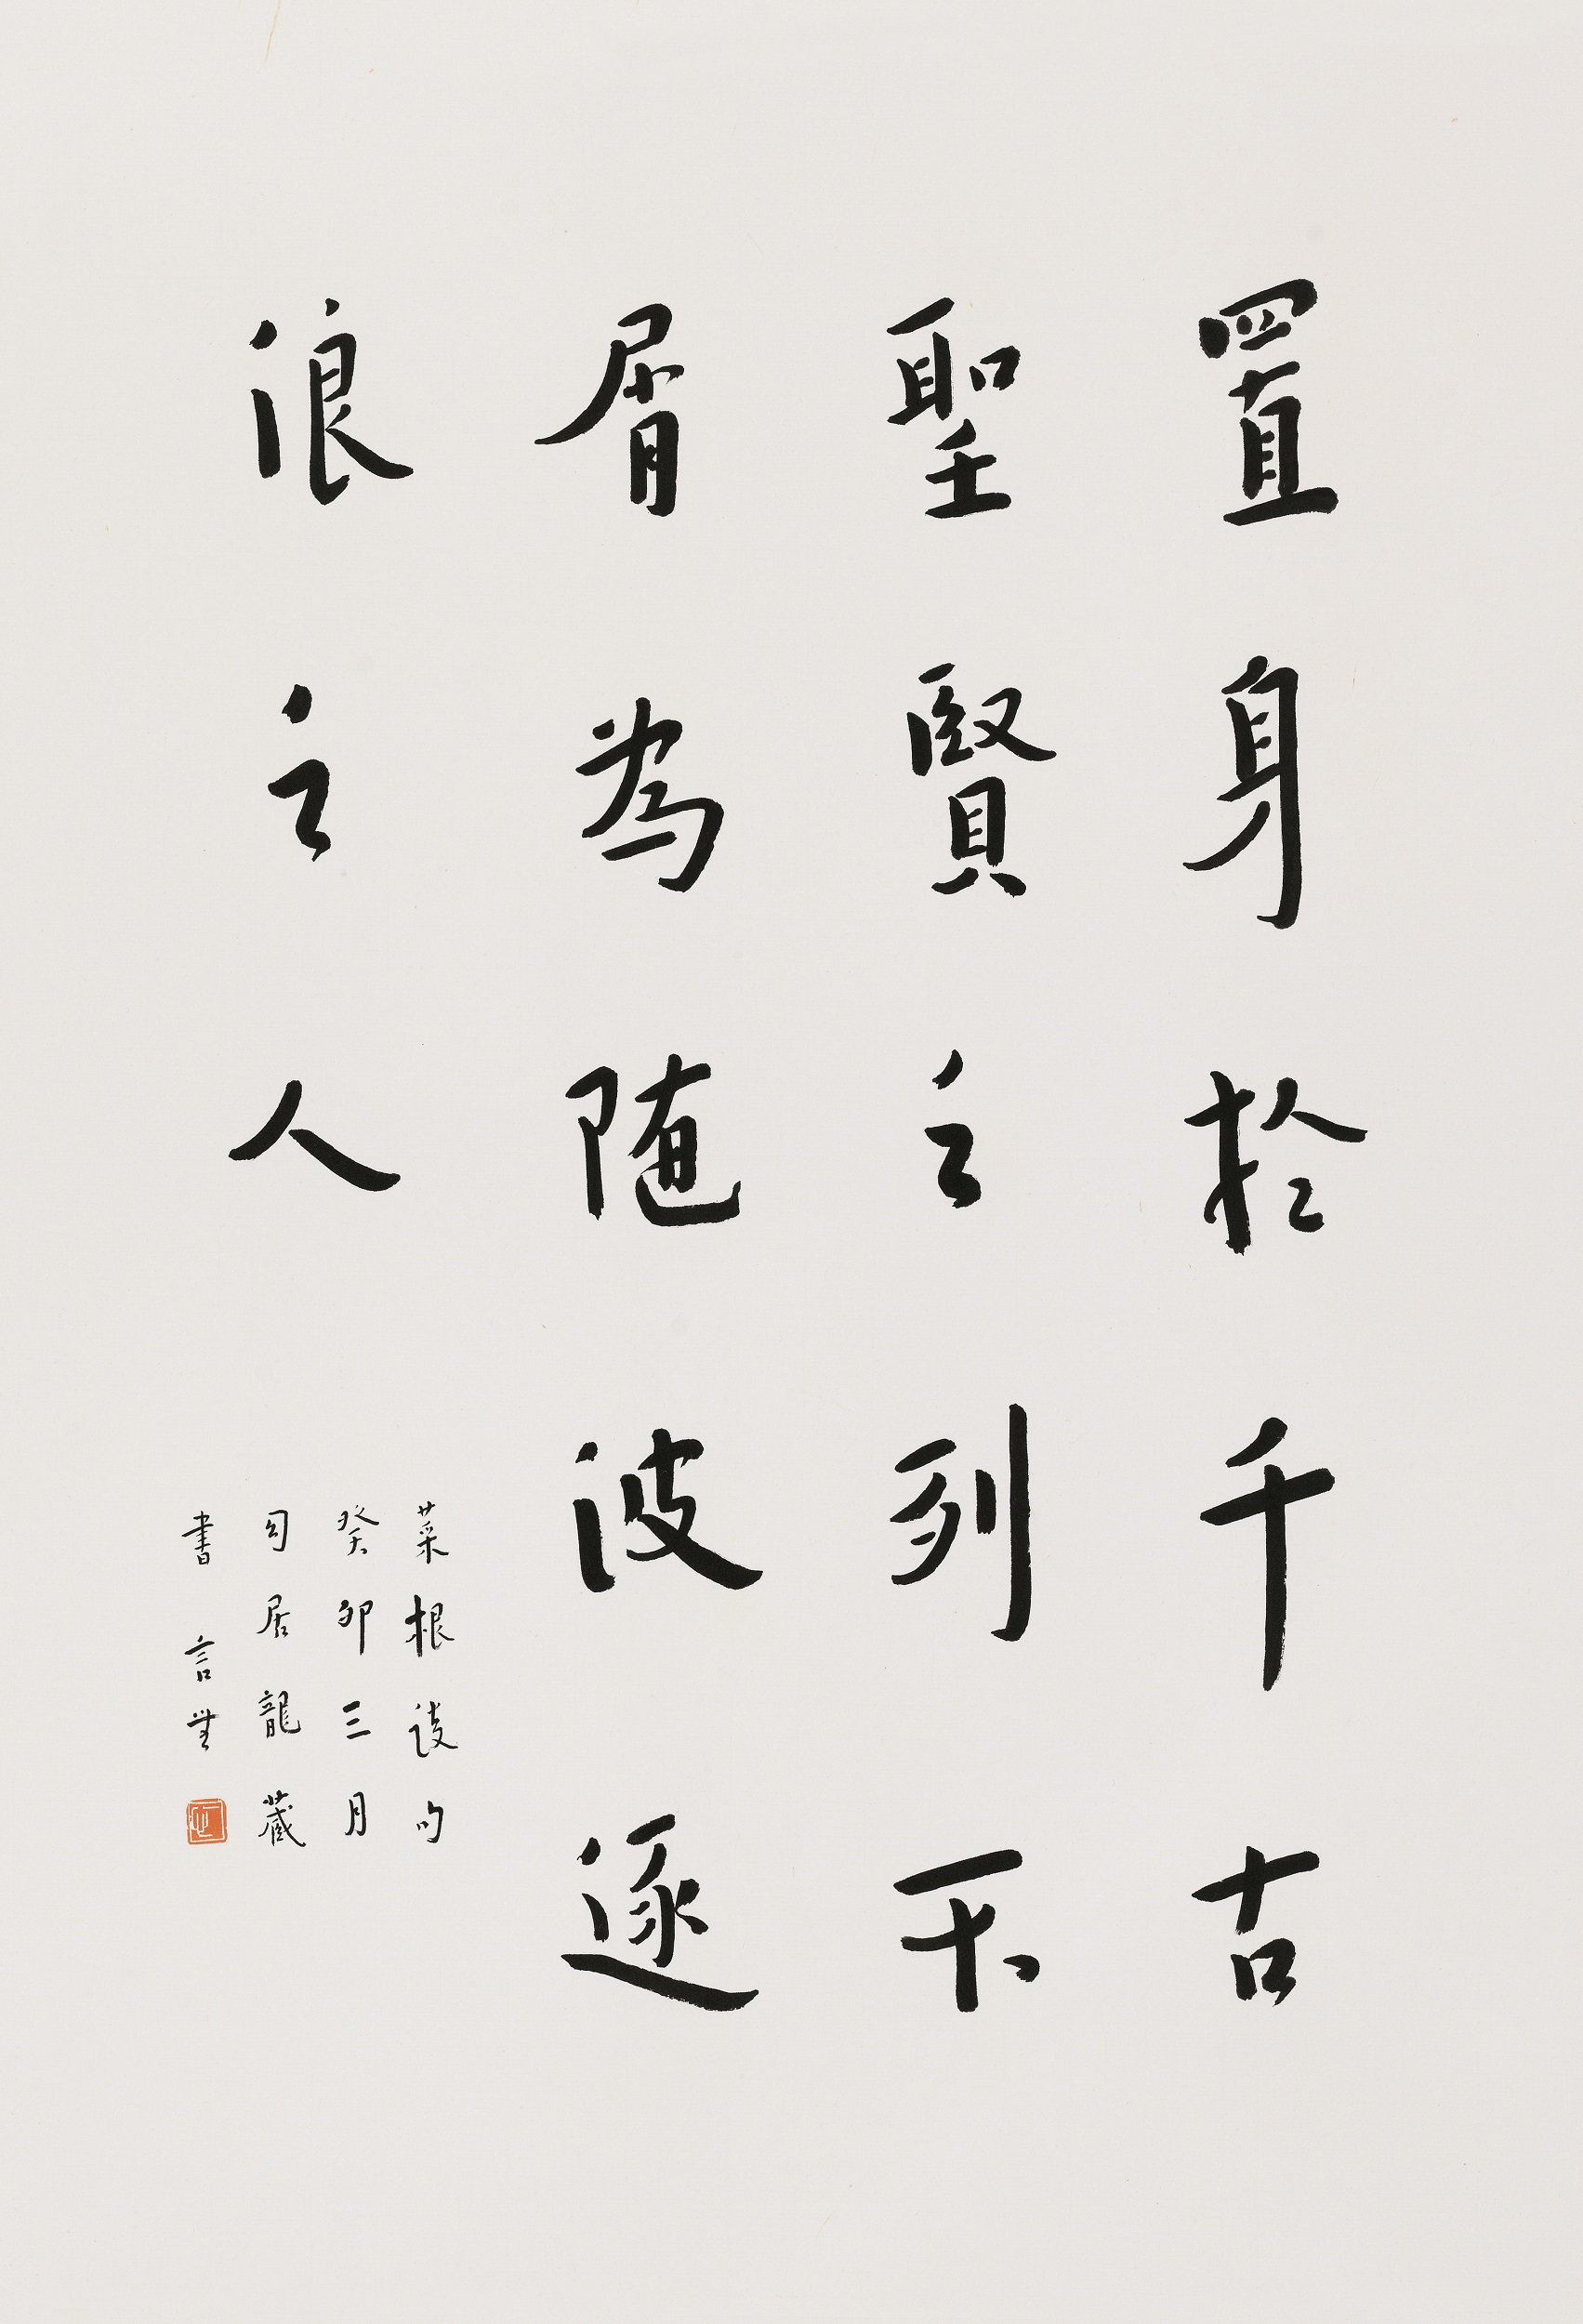 置身於千古
聖賢之列不
屑為随波逐
浪之人
菜根談句
癸卯三月
匀居龍藏
書 言無